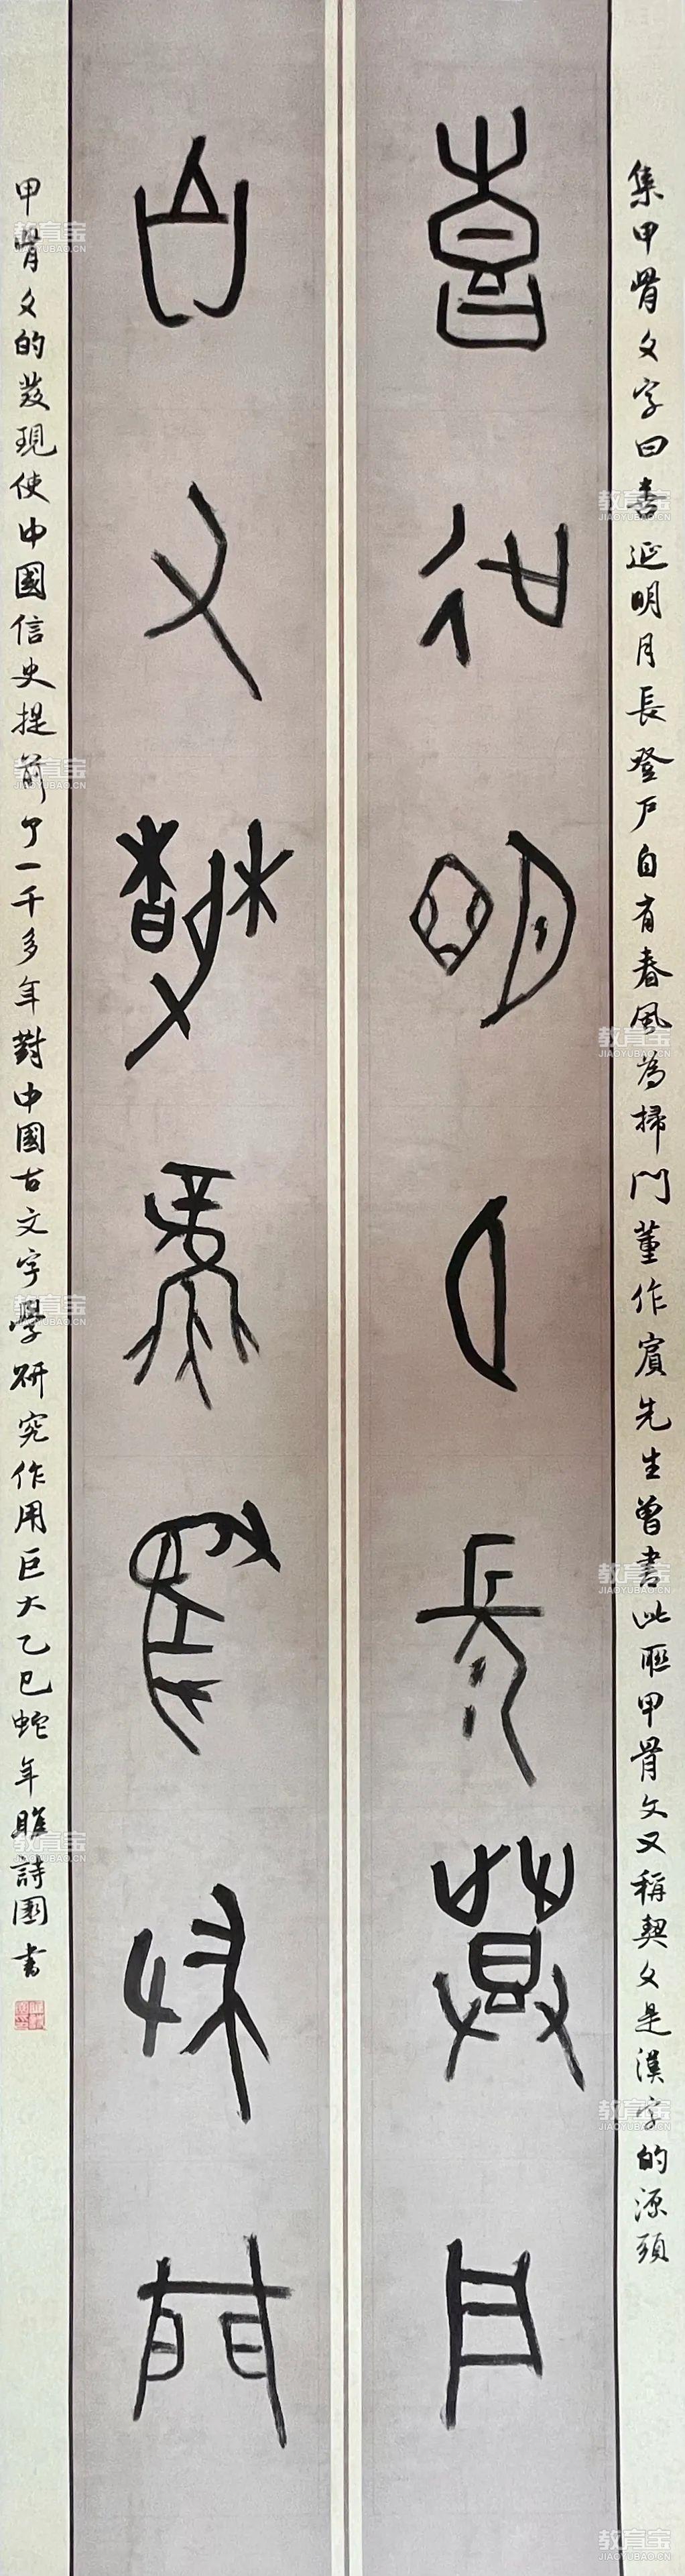 集甲骨文字曰喜延明月長登戶自有春風為掃門董作賓先生曾書此聯甲骨文又稱契文是漢字的源頭
喜延明月長登戶
自有春風為掃門
甲骨文的發現使中國信史提前了一千多年對中國古文字學研究作用巨大乙巳蛇年睢詩園書
教育宝
JIAOYUBAO.CN